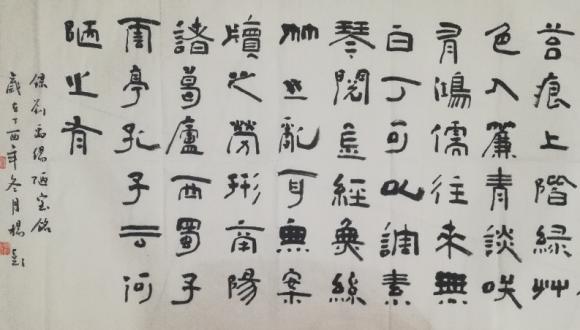 苔痕上階緑艸
色入簾青談咲
有鴻儒往来無
白丁可以調素
琴閱金經無絲
竹之亂耳無案
牘之勞形南陽
諸葛廬西蜀子
雲亭孔子云何
陋之有
録劉禹錫陋室銘
歲在丁酉年冬月楊